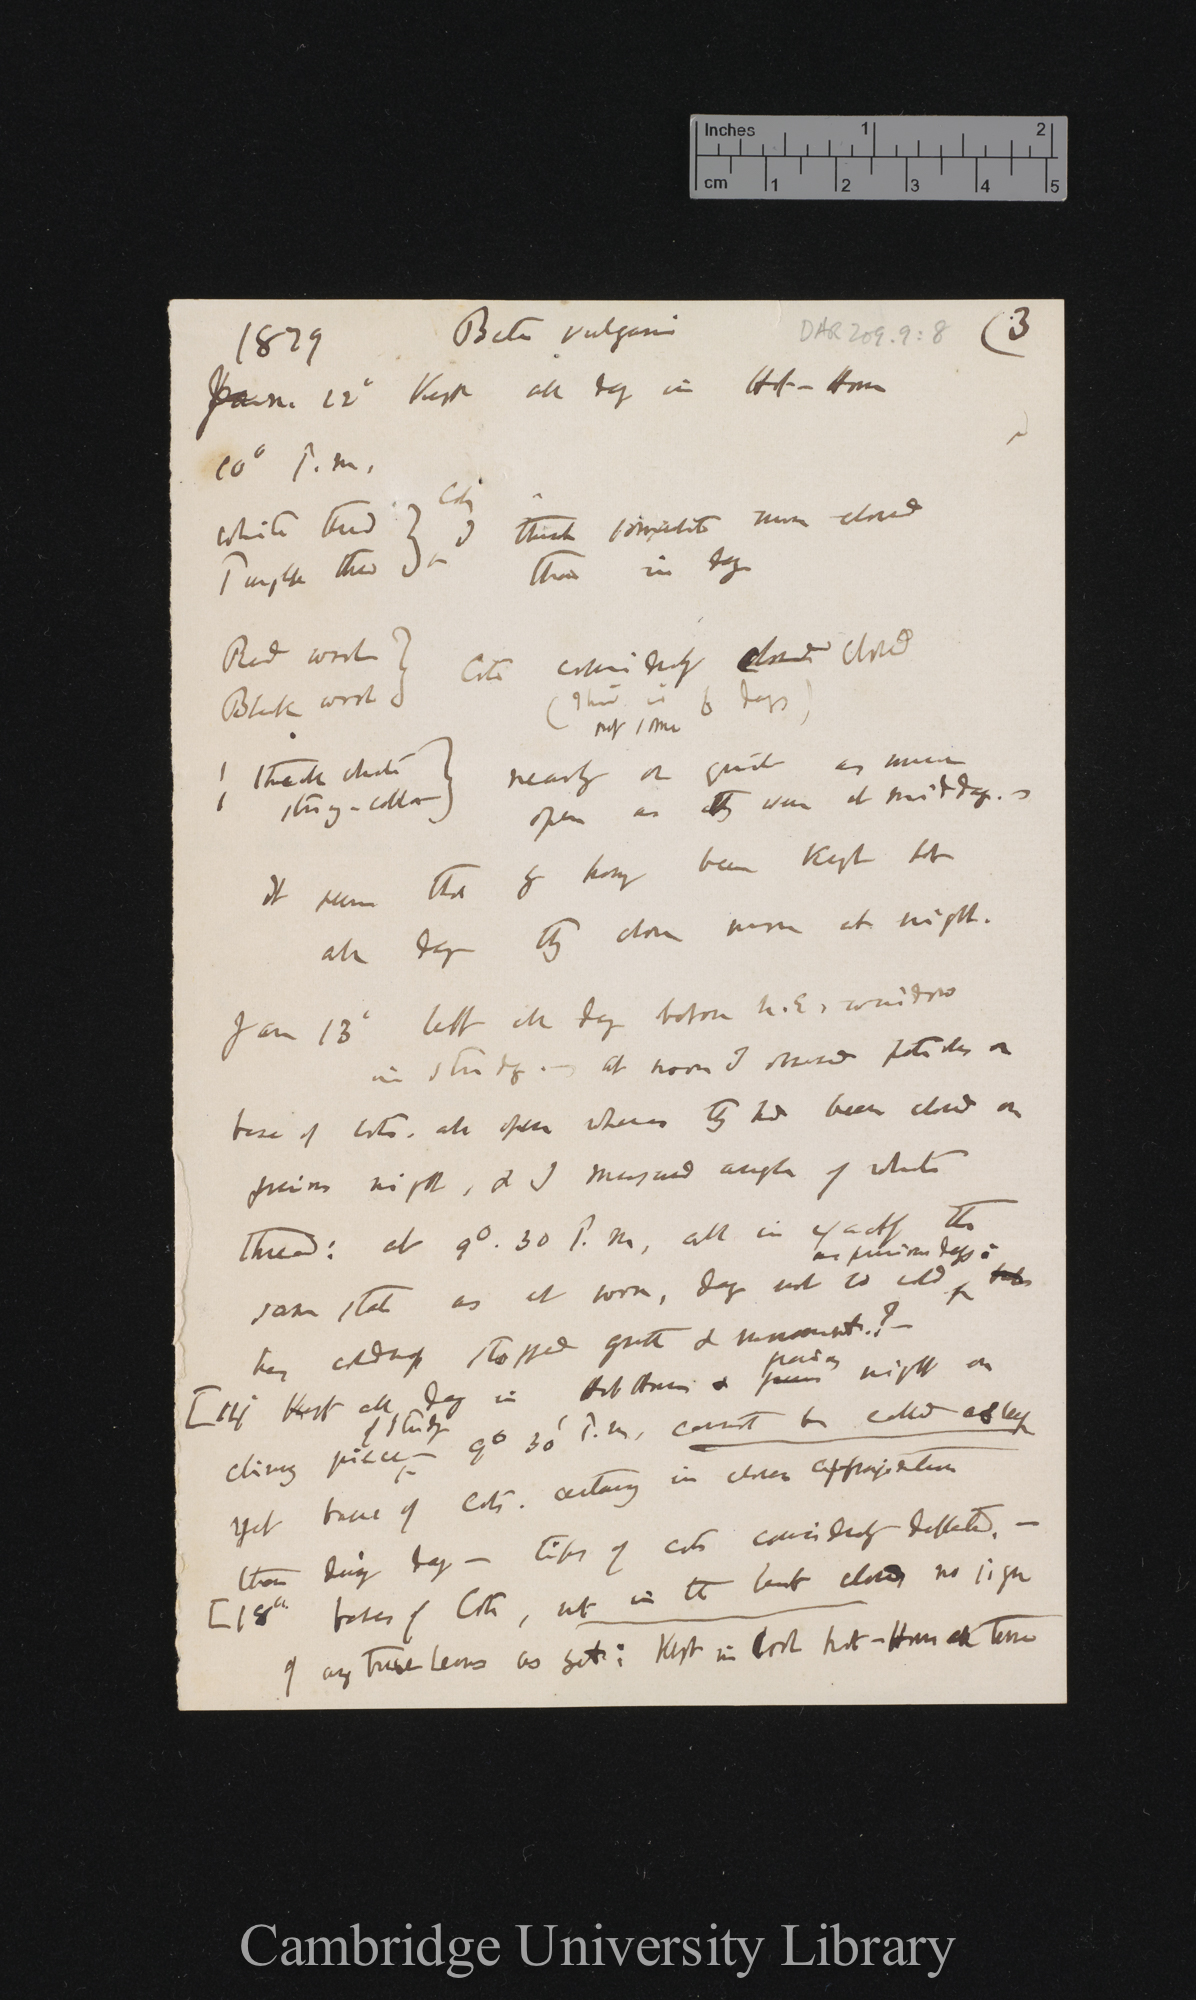 Inches 1 2
cm 1 2 3 4 5
1879 Beta vulgaris DAR 209.9:8 (3
Jan. 12° Kept all day in Hot-House
10° P.m.
white thread } Cots
Purple thread } I think somewhat more closed
than in day
Red wool }
Black wool } Cots considerably closed closed
(not
! thick white }
string-colour } nearly or quite as much
open as they were at mid-day. —
It seems that by having been kept hot
all day they close more at night.
Jan 13° left all day before N.E. window
in study — at noon I observed petioles or
base of cots. all open whereas they had been closed on
previous night, & I measured angle of white
thread: at 9°. 30 P.m, all in exactly the
same state as at noon, day not so cold as previous days:
has coldness stopped growth & movement.? —
[14 Kept all day in Hot House & previous night on
chimney piece of study — 9° 30' P.m, cannot be called asleep
yet base of Cots. certainly in closer approximation
than during day — tips of cots considerably deflected. —
[18th bases of Cots, not in the least closed no sign
of any true leaves as yet: Kept in cool hot-House all time
Cambridge University Library